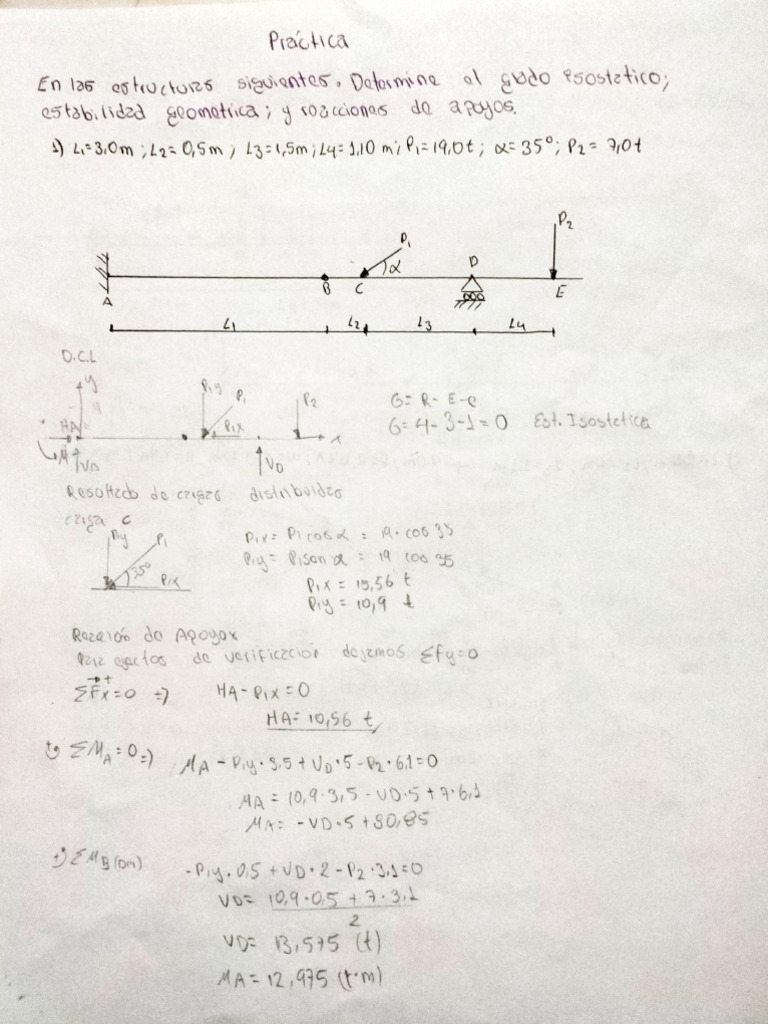 Práctica
En las estructuras siguientes. Determine el grado isostático;
estabilidad geometrica; y reacciones de apoyos.
1) L1=3,0m ; L2= 0,5m ; L3=1,5m ; L4= 1,10 m ; P1=19,0t ; α=35° ; P2= 7,0t
P2
P1
α
D
A
B
C
E
L1
L2
L3
L4
D.C.L
y
P1y
P1
P2
HA
P1x
x
M
VD
VD
G= R- E-C
G= 4-3-1=0 Est. Isostetica
Resultado de cargas distribuidas
carga C
P1y
P1
35°
P1x
P1x = P1 cos α = 19 · cos 35
P1y = P1 sen α = 19 cos 35
P1x = 15,56 t
P1y = 10,9 t
Reacción de Apoyos
Para efectos de verificación dejamos Σfy=0
ΣFx=0 => HA - P1x = 0
HA= 10,56 t
ΣMA=0 => MA - P1y · 3,5 + VD · 5 - P2 · 6,1=0
MA = 10,9 · 3,5 - VD · 5 + 7 · 6,1
MA= -VD · 5 + 80,85
+) ΣMB(Der) -P1y · 0,5 + VD · 2 - P2 · 3,1=0
VD= 10,9 · 0,5 + 7 · 3,1
2
VD= 13,575 (t)
MA= 12,975 (t·m)